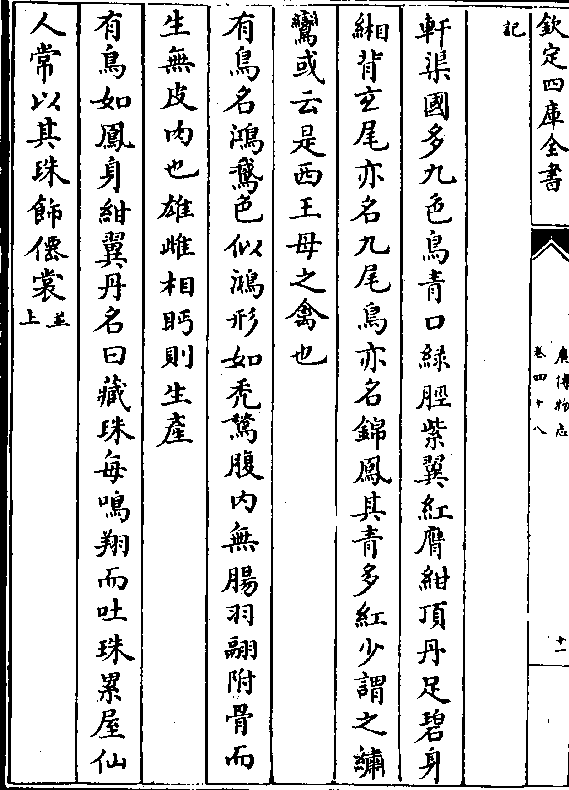 欽定四庫全書
廣博物志
卷四十八
十一
記
軒渠國多九色鳥青口緑脛紫翼紅膺紺頂丹足碧身
緗背玄尾亦名九尾鳥亦名錦鳳其青多紅少謂之繡
鸞或云是西王母之禽也
有鳥名鴻鵝色似鴻形如秃鶖腹内無腸羽翮附骨而
生無皮肉也雄雌相眄則生產
有鳥如鳳身紺翼丹名曰藏珠每鳴翔而吐珠累屋仙
人常以其珠飾僊裳並上